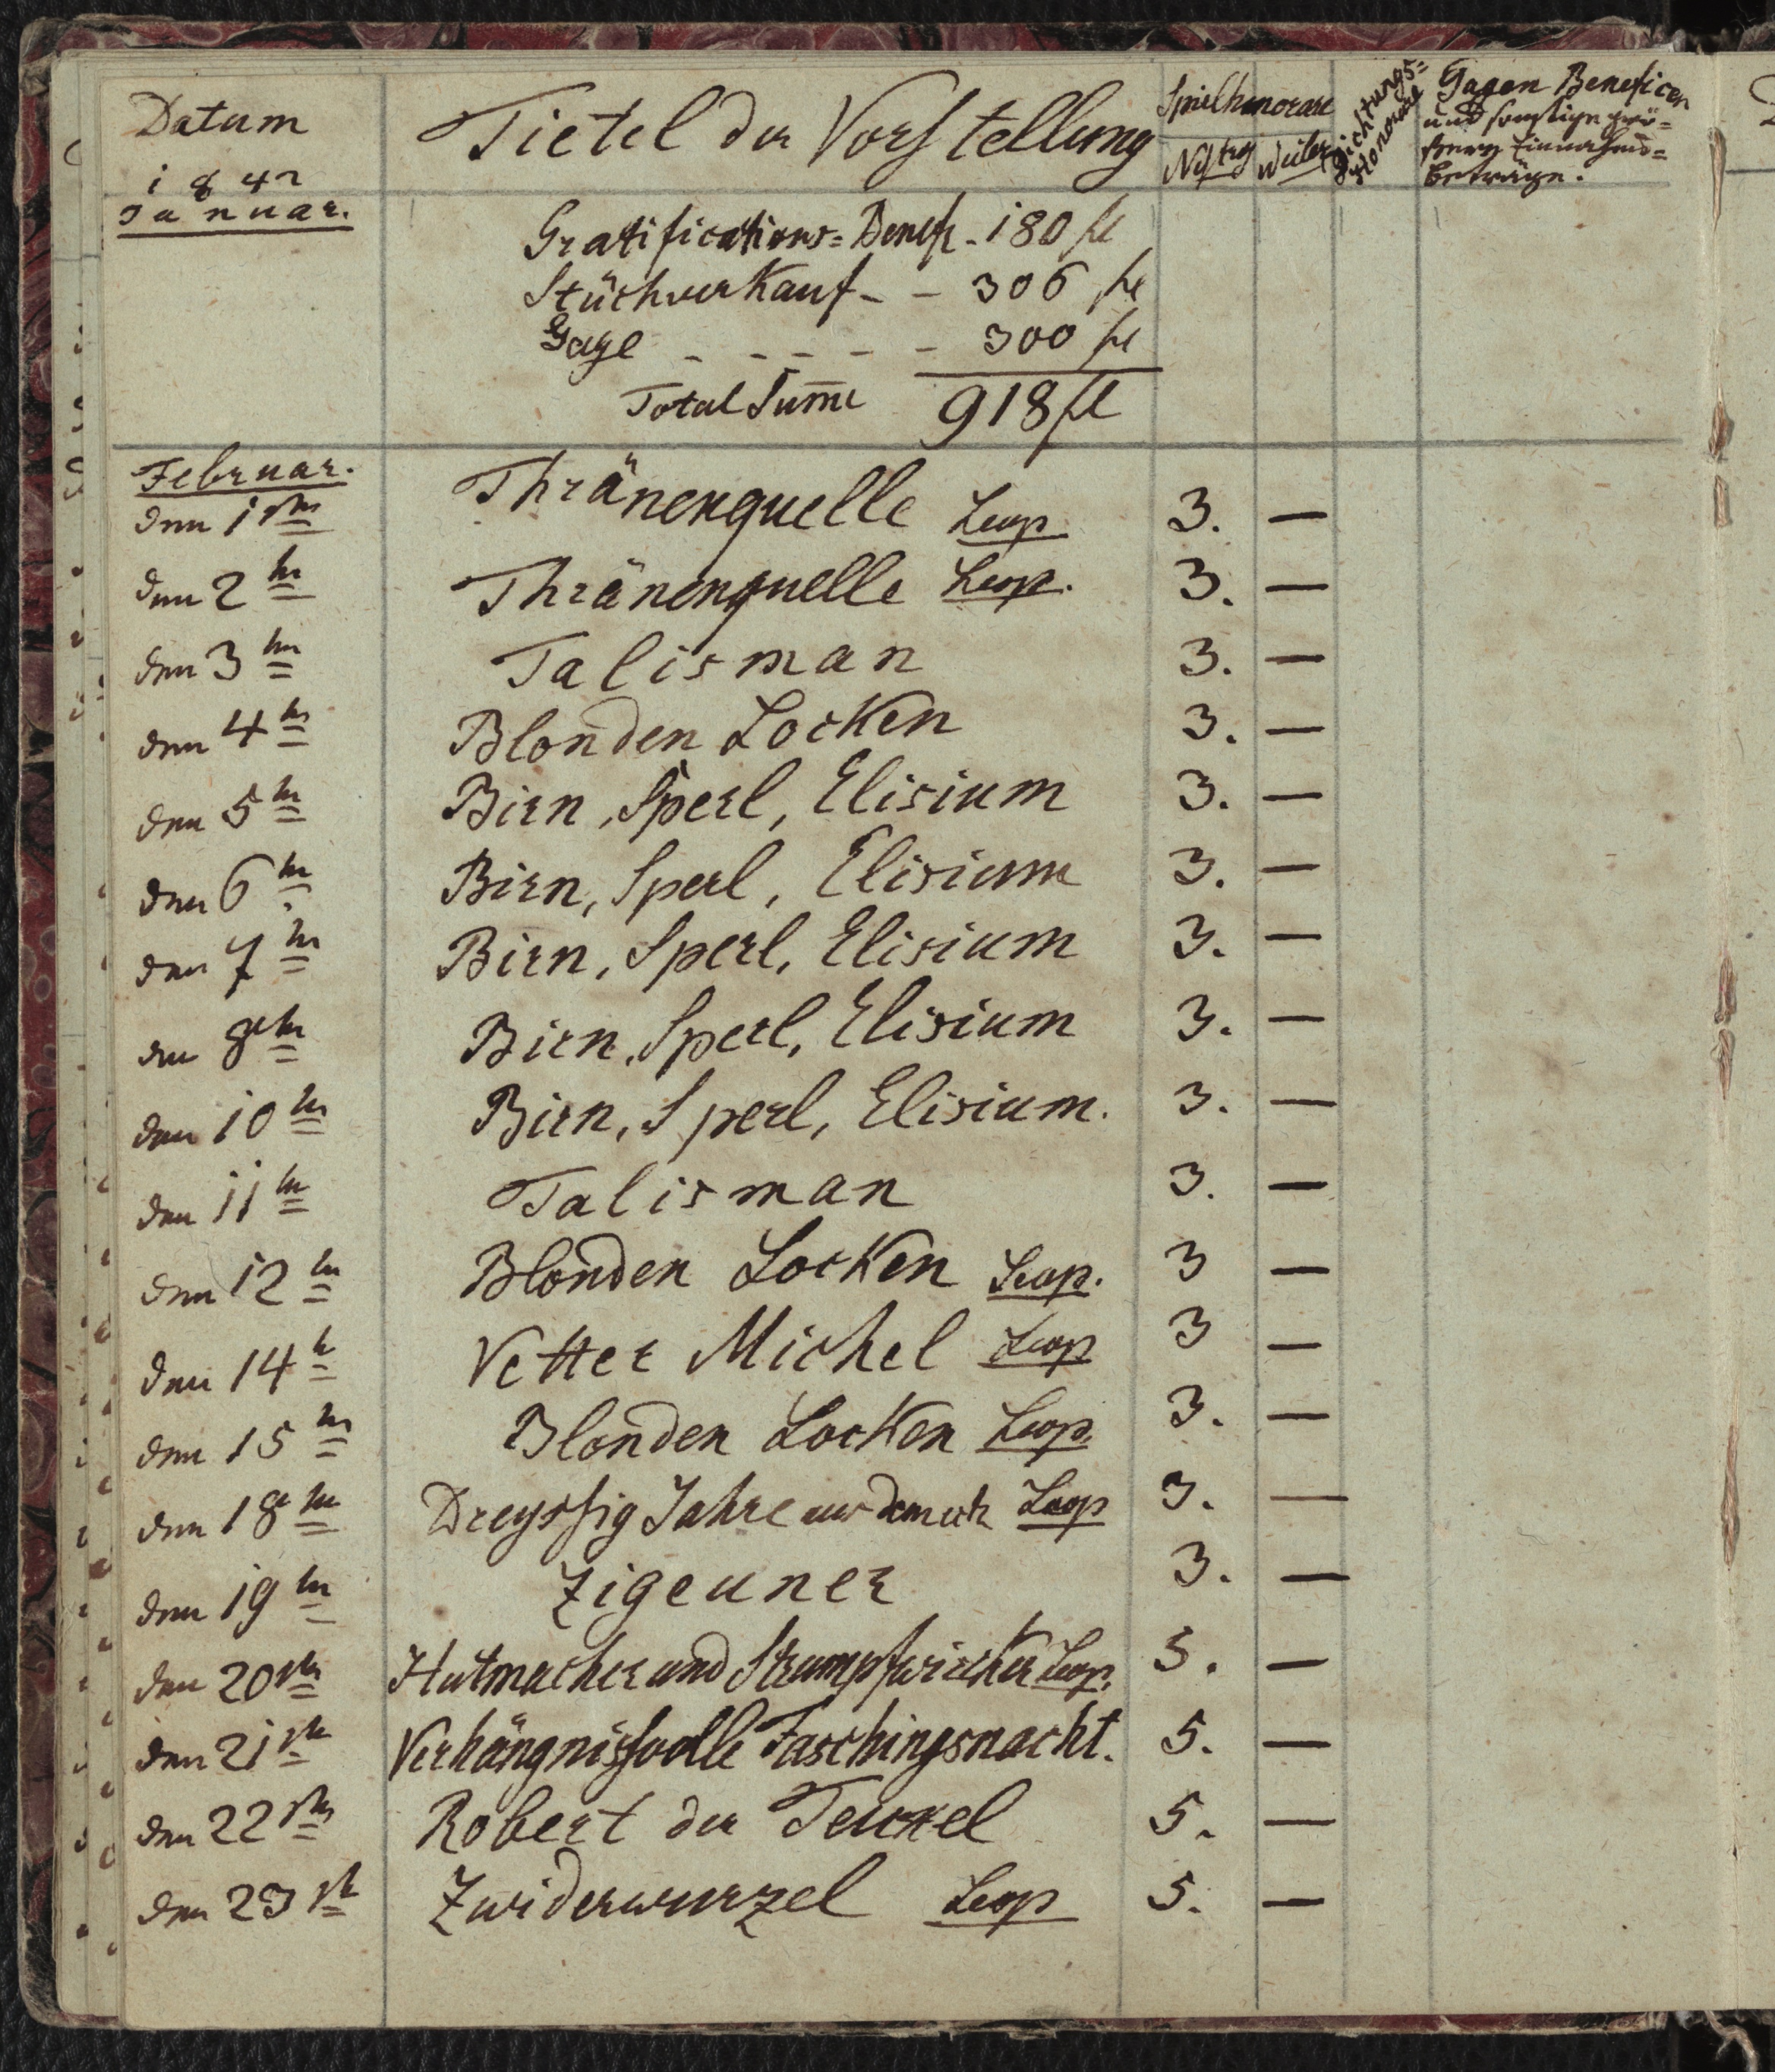 Datum
1842
Januar.
Tietel der Vorstellung
Spielhonorare
Nstroy Weiler
Dichtungs=
Honorare
Gagen Beneficen
und sonstige grö=
ßere Einnahms=
beträge.
Gratifications=Benefi - 180 fl
Stückverkauf - - 306 fl
Gage - - - - - 300 fl
Total Sum̅e 918 fl
Februar.
den 1sten Thränenquelle Leop 3. —
den 2tn Thränenquelle Leop. 3. —
den 3tn Talisman 3. —
den 4tn Blonden Locken 3. —
den 5tn Birn, Sperl, Elisium 3. —
den 6tn Birn, Sperl, Elisium 3. —
den 7tn Birn, Sperl, Elisium 3. —
den 8tn Birn, Sperl, Elisium 3. —
den 10tn Birn, Sperl, Elisium. 3. —
den 11tn Talisman 3. —
den 12tn Blonden Locken Leop. 3 —
den 14tn Vetter Michel Leop 3 —
den 15tn Blonden Locken Leop. 3. —
den 18tn Dreyssig Jahre aus dem Leop 3. —
den 19tn Zigeuner 3. —
den 20stn Hutmacher und Strumpfwirker Leop. 5. —
den 21stn Verhängnißvolle Faschingsnacht. 5. —
den 22stn Robert der Teuxel 5. —
den 23stn Zwiderwurzel Leop 5. —